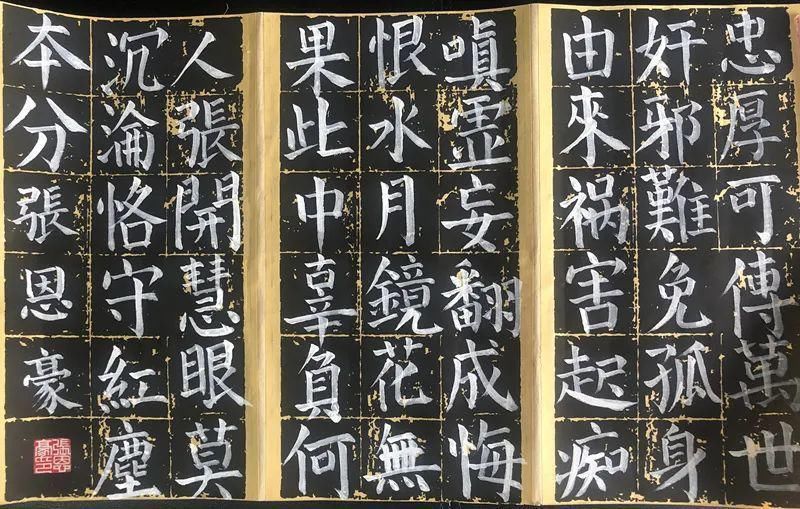 忠厚可傳萬世
奸邪難免孤身
由來祸害起痴
嗔霊妄翻成悔
恨水月鏡花無
果此中辜負何
人張開慧眼莫
沉淪恪守紅塵
本分張恩豪
張恩豪印